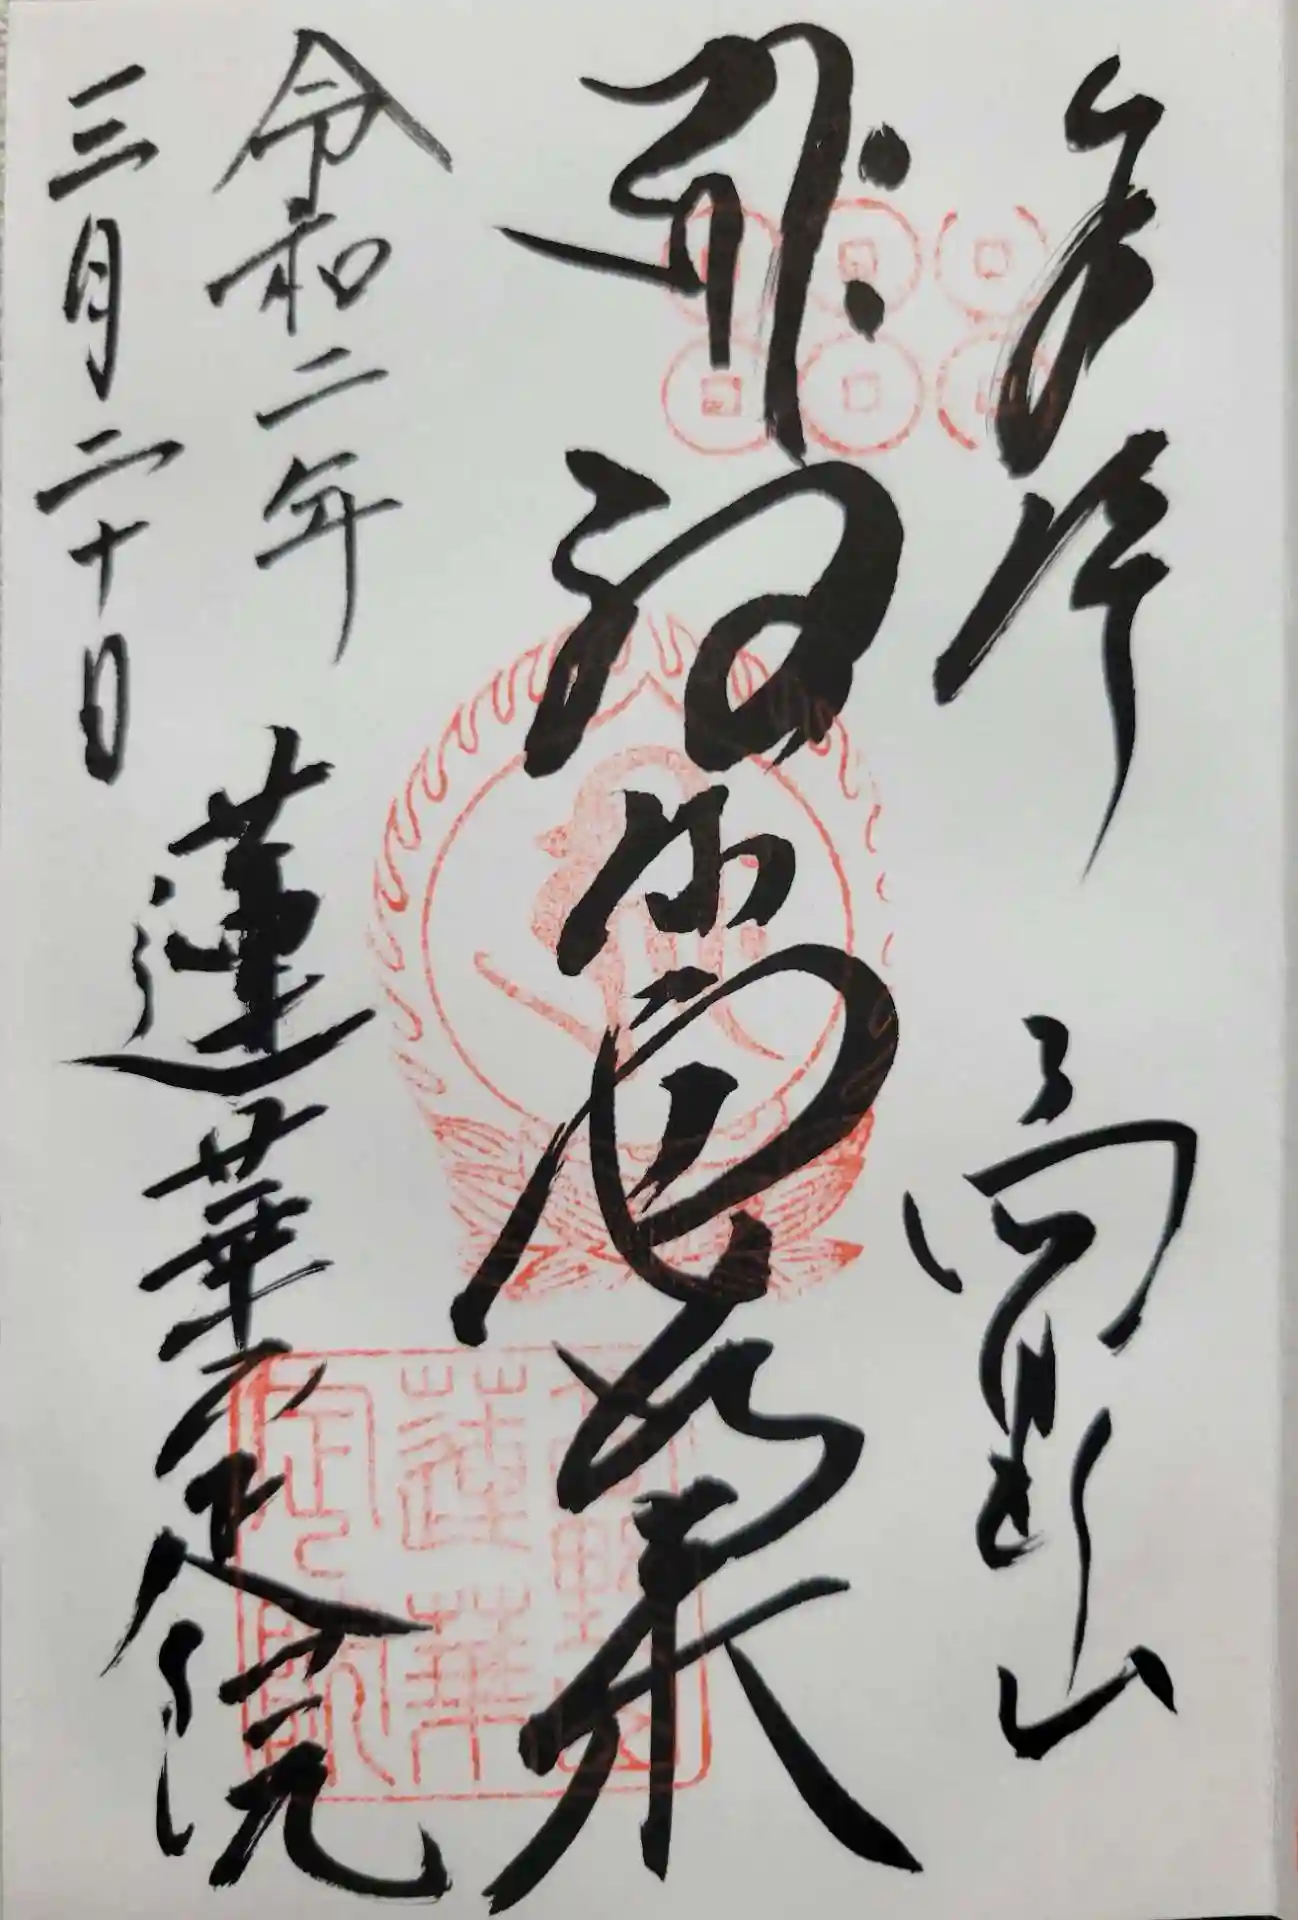 奉拝 高野山
阿弥陀如来
令和二年
三月二十日
蓮華定院
高野山
蓮華
定院